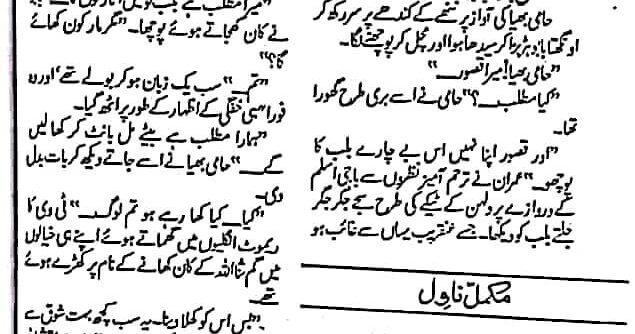 حامی بھیا کی آواز پر ننھے کے کندھے پر سر رکھ کر
اونگھتا بابو ہڑبڑا کر سیدھا ہوا اور مچل کر پوچھنے لگا۔
"حامی بھیا! میرا قصور۔"
"کیا مطلب۔۔۔؟" حامی نے اسے بری طرح گھورا
تھا۔
"اور قصور اپنا نہیں اس بے چارے بلب کا
پوچھو۔" عمران نے ترحم آمیز نظروں سے باجی اسلم
کے دروازے پر دلہن کے ٹیکے کی طرح سجے جگر جگر
جلتے بلب کو دیکھا۔ جسے عنقریب یہاں سے غائب ہو
مکمل ناول
"میرا مطلب ہے
نے کان کھجاتے ہوئے پوچھا۔ "مگر مار کون کھائے
گا؟"
"تم۔۔۔" سب یک زبان ہو کر بولے تھے اور وہ
فورا" ہی خفگی کے اظہار کے طور پر اٹھ گیا۔
"ہمارا مطلب ہے بیٹے مل بانٹ کر کھالیں
گے۔۔۔" حامی بھیا نے اسے جاتے دیکھ کر بات بدل
دی۔
"کیا۔۔۔ کیا کھا رہے ہو تم لوگ۔۔۔" ٹی وی کا
ریموٹ انگلیوں میں گھماتے ہوئے اپنے ہی خیالوں
میں گم ثناء اللہ کے کان کھانے کے نام پر کھڑے ہوئے
تھے۔
"بس اس کو کھلا دینا۔ یہ سب کچھ بہت شوق سے